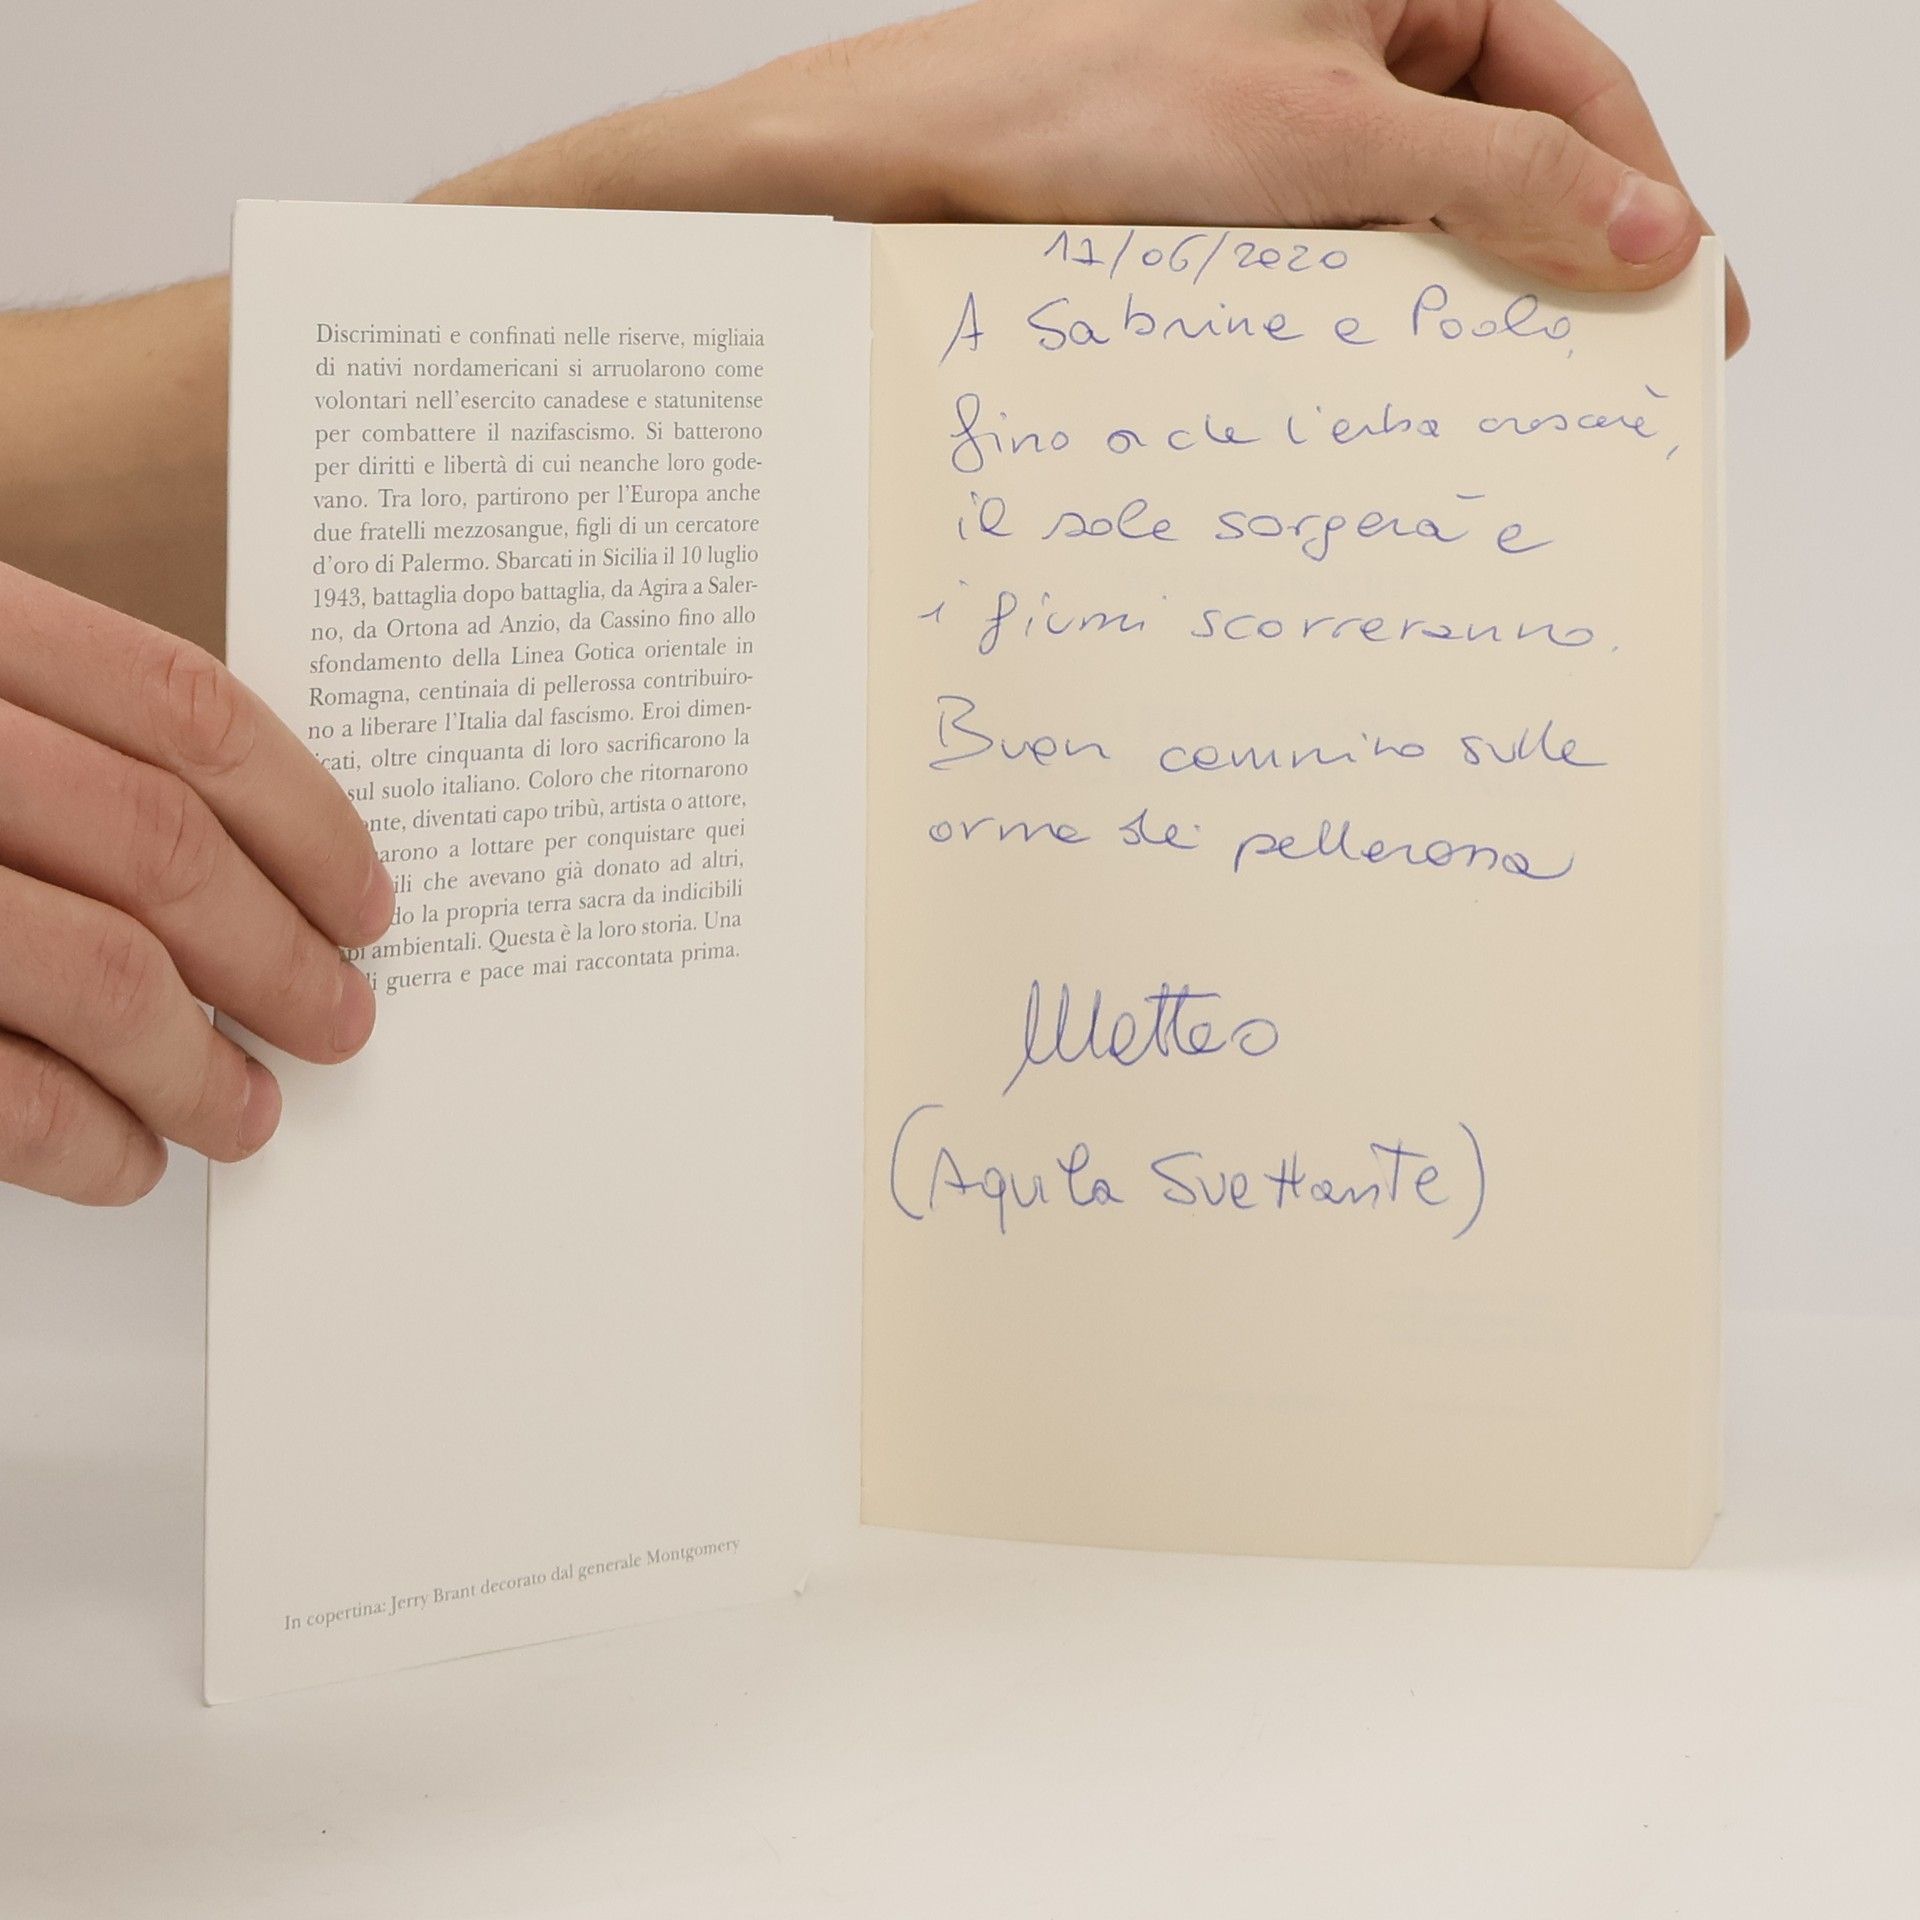 Discriminati e confinati nelle riserve, migliaia
di nativi nordamericani si arruolarono come
volontari nell'esercito canadese e statunitense
per combattere il nazifascismo. Si batterono
per diritti e libertà di cui neanche loro gode-
vano. Tra loro, partirono per l'Europa anche
due fratelli mezzosangue, figli di un cercatore
d'oro di Palermo. Sbarcati in Sicilia il 10 luglio
1943, battaglia dopo battaglia, da Agira a Saler-
no, da Ortona ad Anzio, da Cassino fino allo
sfondamento della Linea Gotica orientale in
Romagna, centinaia di pellerossa contribuiro-
no a liberare l'Italia dal fascismo. Eroi dimen-
icati, oltre cinquanta di loro sacrificarono la
sul suolo italiano. Coloro che ritornarono
nte, diventati capo tribù, artista o attore,
arono a lottare per conquistare quei
ili che avevano già donato ad altri,
do la propria terra sacra da indicibili
pi ambientali. Questa è la loro storia. Una
di guerra e pace mai raccontata prima.
In copertina: Jerry Brant decorato dal generale Montgomery
11/06/2020
A Sabrine e Paolo,
fino a che l'erba crescerà,
il sole sorgerà e
i fiumi scorreranno.
Buon cammino sulle
orme dei pellerossa
Matteo
(Aquila Svettante)